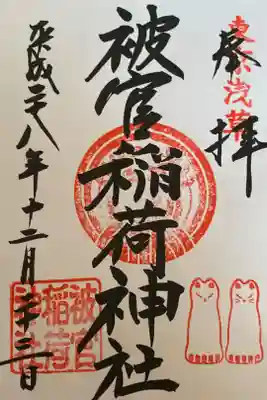 東京浅草
奉拝
被官稲荷神社
被官
稲荷
神社
平成二十八年十二月二十三日